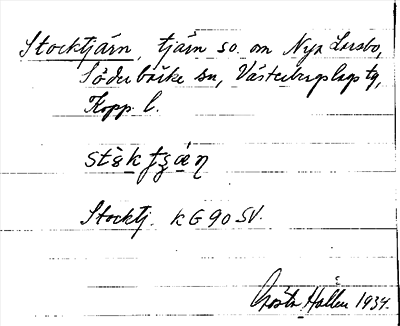 Stocktjärn, tjärn so. om Nya Larsbo,
Söderbärke sn, Västerbergslags tg,
Kopp. l.
Stocktj. KG 90 SV.
Gösta Hallén 1934.